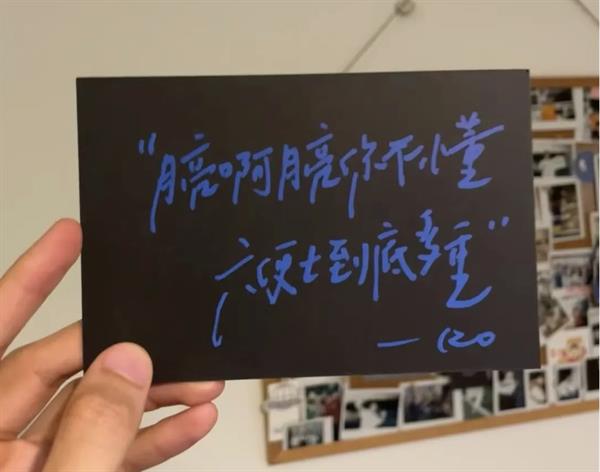 “月亮啊月亮你不懂
六便士到底多重”